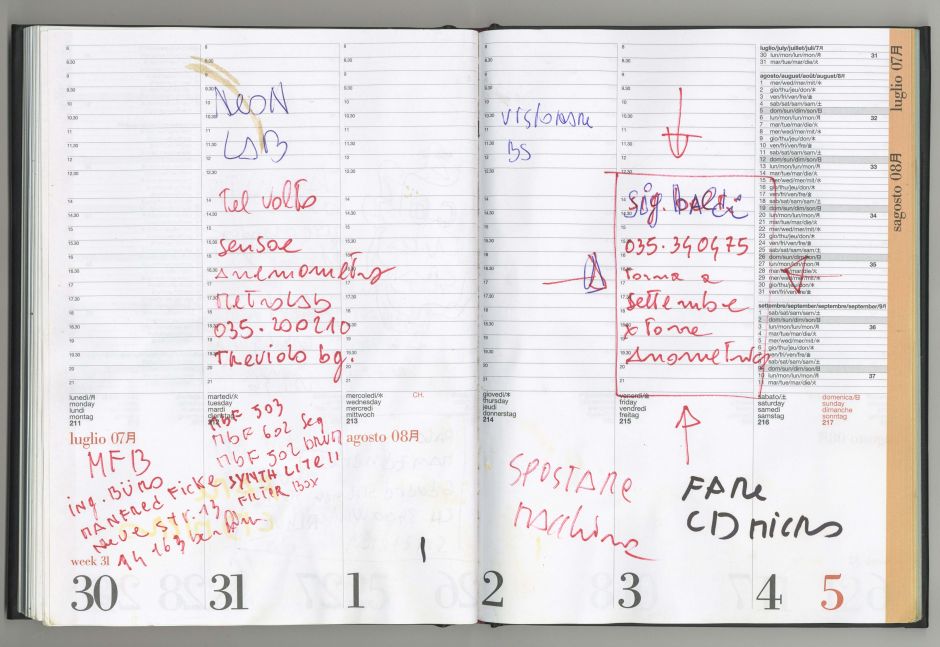 NEON
LAB
Tel volto
sensore
anemometro
metrolab
035.200210
Theviolo bg.
visionare
BS
sig. balzi
035.340475
Torna a
settembre
x Torre
Anemometrica
luglio/july/juillet/juli/7月
30 lun/mon/lun/mon/月 31
31 mar/tue/mar/die/火
agosto/august/août/august/8月
1 mer/wed/mer/mit/水
2 gio/thu/jeu/don/木
3 ven/fri/ven/fre/金
4 sab/sat/sam/sam/土
5 dom/sun/dim/son/日
6 lun/mon/lun/mon/月 32
7 mar/tue/mar/die/火
8 mer/wed/mer/mit/水
9 gio/thu/jeu/don/木
10 ven/fri/ven/fre/金
11 sab/sat/sam/sam/土
12 dom/sun/dim/son/日
13 lun/mon/lun/mon/月 33
14 mar/tue/mar/die/火
15 mer/wed/mer/mit/水
16 gio/thu/jeu/don/木
17 ven/fri/ven/fre/金
18 sab/sat/sam/sam/土
19 dom/sun/dim/son/日
20 lun/mon/lun/mon/月 34
21 mar/tue/mar/die/火
22 mer/wed/mer/mit/水
23 gio/thu/jeu/don/木
24 ven/fri/ven/fre/金
25 sab/sat/sam/sam/土
26 dom/sun/dim/son/日
27 lun/mon/lun/mon/月 35
28 mar/tue/mar/die/火
29 mer/wed/mer/mit/水
30 gio/thu/jeu/don/木
31 ven/fri/ven/fre/金
settembre/september/septembre/september/9月
1 sab/sat/sam/sam/土
2 dom/sun/dim/son/日
3 lun/mon/lun/mon/月 36
4 mar/tue/mar/die/火
5 mer/wed/mer/mit/水
6 gio/thu/jeu/don/木
7 ven/fri/ven/fre/金
8 sab/sat/sam/sam/土
9 dom/sun/dim/son/日
10 lun/mon/lun/mon/月 37
11 mar/tue/mar/die/火
luglio 07月
agosto 08月
lunedì/月
monday
lundi
montag
211
luglio 07月
MFB
ing. BÜRO
MANFRED Ficke
Neue str. 13
14163 berlin
week 31
30
martedì/火
tuesday
mardi
dienstag
212
MbF 503
MbF 602 Seq
MbF 502 drum
SYNTH LITE II
FILTER BOX
31
mercoledì/水 CH.
wednesday
mercredi
mittwoch
213
agosto 08月
1
giovedì/木
thursday
jeudi
donnerstag
214
SPOSTARE
macchina
2
venerdì/金
friday
vendredi
freitag
215
FARE
CD micro
3
sabato/土
saturday
samedi
samstag
216
4
domenica/日
sunday
dimanche
sonntag
217
5